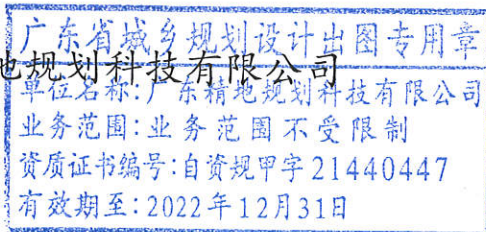 广东省城乡规划设计出图专用章
地规划科技有限公司
单位名称:广东精地规划科技有限公司
业务范围:业务范围不受限制
资质证书编号:自资规甲字21440447
有效期至:2022年12月31日